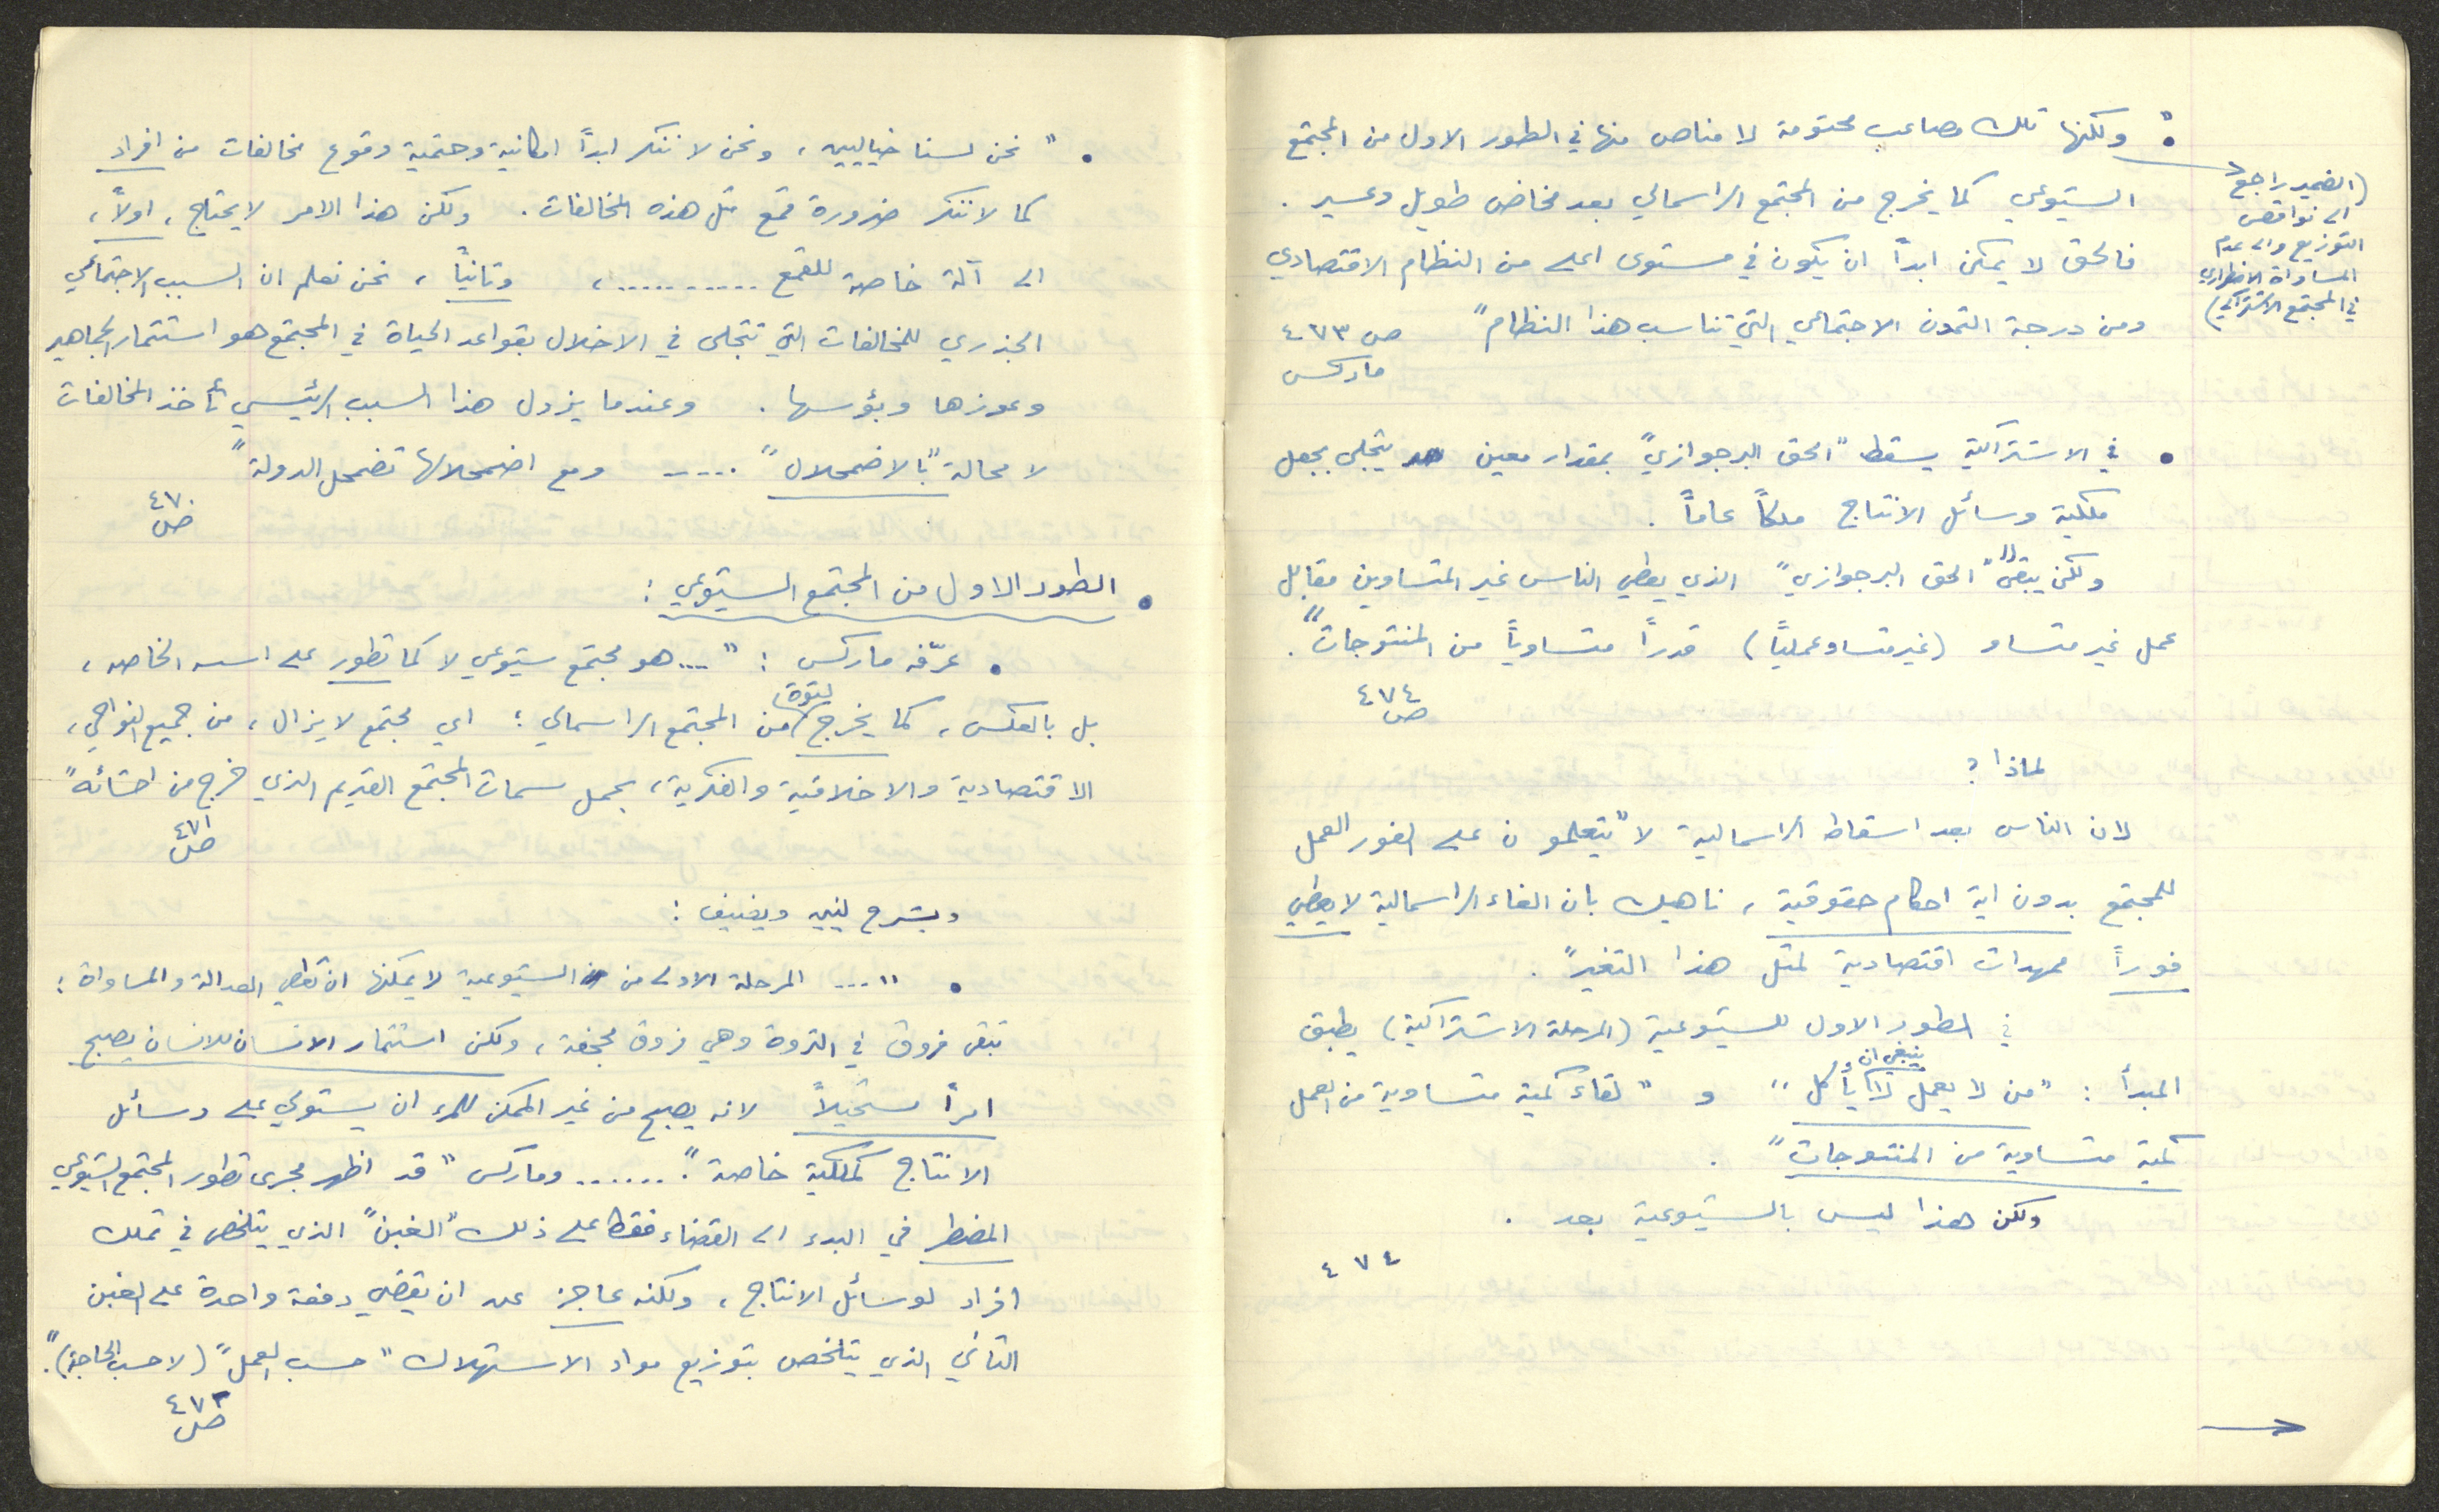 • " نحن لسنا خياليين ، ونحن لا ننكر ابداً امكانية وحتمية وقوع مخالفات من افراد
كما لا ننكر ضرورة قمع مثل هذه المخالفات . ولكن هذا الامر لا يحتاج ، اولاً ،
الى آلة خاصة للقمع .......... ، وثانياً ، نحن نعلم ان السبب الاجتماعي
الجذري للمخالفات التي تتجلى في الاخلال بقواعد الحياة في المجتمع هو استثمار الجماهير
وعوزها وبؤسها . وعندما يزول هذا السبب الرئيسي تأخذ المخالفات
لا محالة "بالاضمحلال" ..... ومع اضمحلالها تضمحل الدولة "
ص ٤٧٠
• الطور الاول من المجتمع الشيوعي :
• عرّفه ماركس : "... هو مجتمع شيوعي لا كما تطور على اسسه الخاصه ،
بل بالعكس ، كما يخرج لتوه من المجتمع الراسمالي ؛ اي مجتمع لا يزال ، من جميع النواحي ،
الاقتصادية والاخلاقية والفكرية ، يحمل سمات المجتمع القديم الذي خرج من احشائه "
ص ٤٧١
ويشرح لينين ويضيف :
• " ... المرحلة الاولى من الشيوعية لا يمكنها ان تعطي العدالة والمساواة :
تبقى فروق في الثروة وهي فروق مجحفة ، ولكن استثمار الانسان للانسان يصبح
امراً مستحيلاً لانه يصبح من غير الممكن للمرء ان يستولي على وسائل
الانتاج كملكية خاصة " . ...... وماركس " قد اظهر مجرى تطور المجتمع الشيوعي
المضطر في البدء الى القضاء فقط على ذلك "الغبن" الذي يتلخص في تملك
افراد لوسائل الانتاج ، ولكنه عاجز عن ان يقضي دفعة واحدة على الغبن
الثاني الذي يتلخص بتوزيع مواد الاستهلاك " حسب العمل " (لا حسب الحاجة) " .
ص ٤٧٢
• " ولكنها تلك مصاعب محتومة لا مناص منها في الطور الاول من المجتمع
الشيوعي كما يخرج من المجتمع الراسمالي بعد مخاض طويل وعسير .
فالحق لا يمكن ابداً ان يكون في مستوى اعلى من النظام الاقتصادي
ومن درجة التمدن الاجتماعي التي تناسب هذا النظام " ص ٤٧٣
ماركس
(الضمير راجع
الى نواقص
التوزيع والى عدم
المساواة الاضطراري
في المجتمع الاشتراكي)
• في الاشتراكية يسقط " الحق البرجوازي " بمقدار معين يتجلى بجعل
ملكية وسائل الانتاج ملكاً عاماً .
ولكن يبقى " " الحق البرجوازي " الذي يعطي الناس غير المتساوين مقابل
عمل غير متساو (غير متساو عملياً) قدراً متساوياً من المنتوجات " .
ص ٤٧٤
لماذا ؟
لان الناس بعد اسقاط الراسمالية لا " يتعلمون على الفور العمل
للمجتمع بدون اية احكام حقوقية ، ناهيك بان الغاء الراسمالية لا يعطي
فوراً ممهدات اقتصادية لمثل هذا التغير " .
في الطور الاول للشيوعية (المرحلة الاشتراكية) يطبق
المبدأ : " من لا يعمل لا ينبغي ان يأكل " و " لقاء كمية متساوية من العمل
كمية متساوية من المنتوجات " .
ولكن هذا ليس بالشيوعية بعد .
٤٧٤